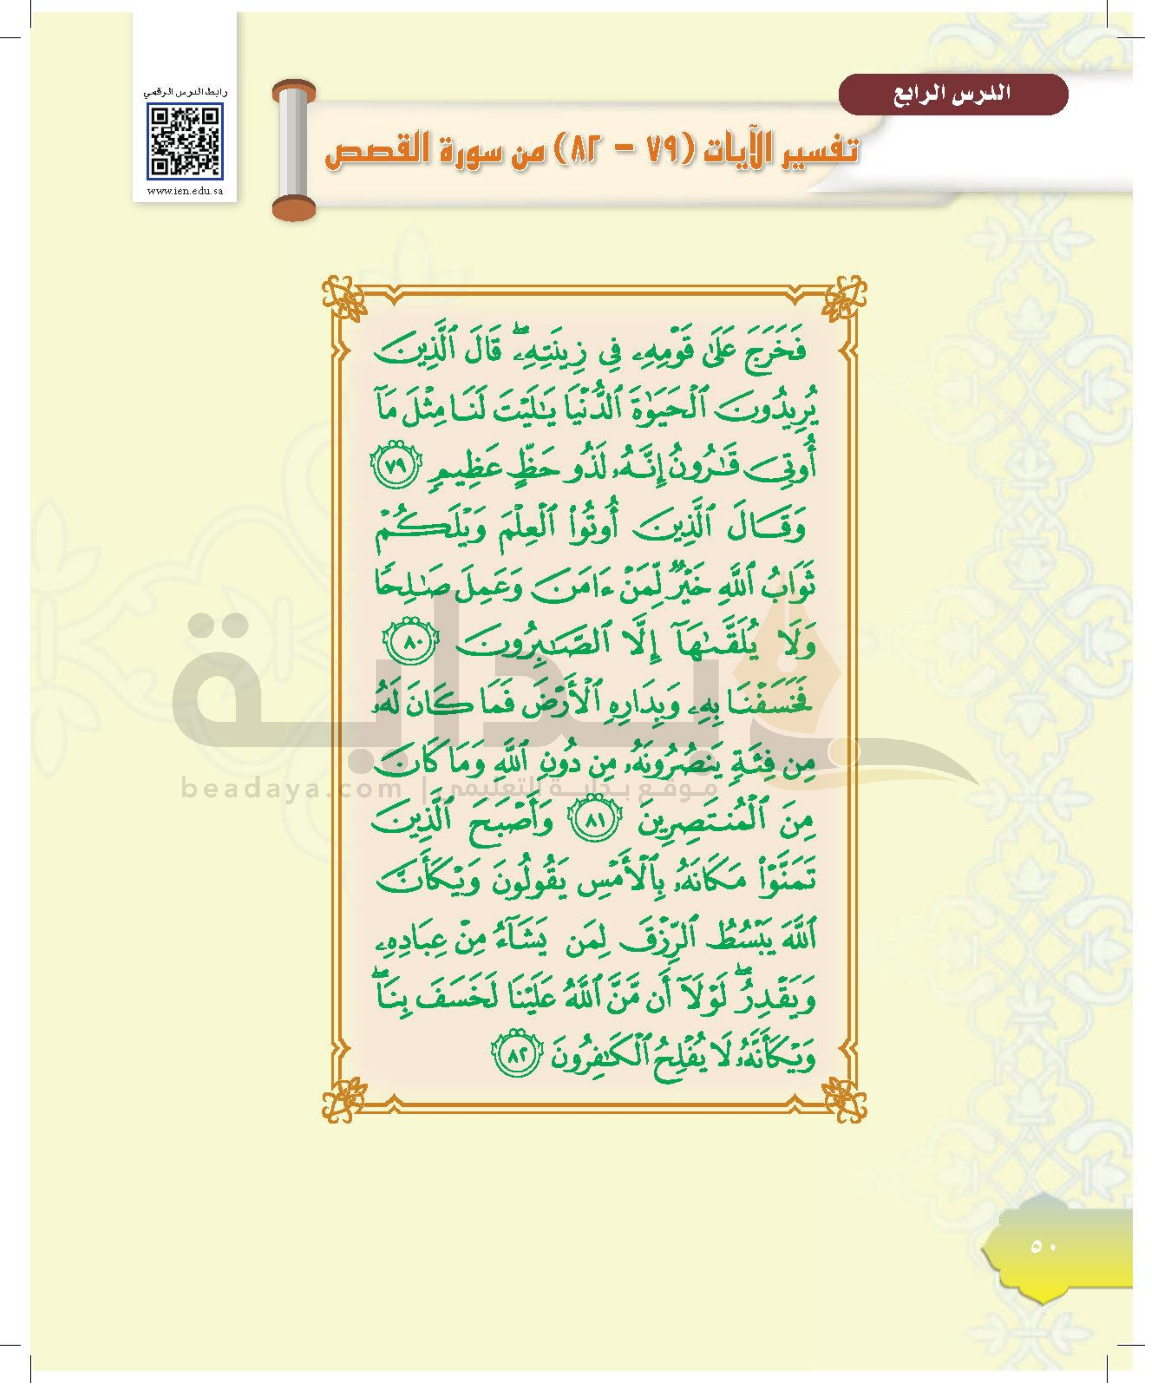 رابط الدرس الرقمي
www.ien.edu.sa
الدرس الرابع
تفسير الآيات (٧٩ - ٨٢) من سورة القصص
فَخَرَجَ عَلَىٰ قَوْمِهِۦ فِي زِينَتِهِۦۖ قَالَ ٱلَّذِينَ
يُرِيدُونَ ٱلْحَيَوٰةَ ٱلدُّنْيَا يَٰلَيْتَ لَنَا مِثْلَ مَآ
أُوتِيَ قَٰرُونُ إِنَّهُۥ لَذُو حَظٍّ عَظِيمٍ ٧٩
وَقَالَ ٱلَّذِينَ أُوتُوا۟ ٱلْعِلْمَ وَيْلَكُمْ
ثَوَابُ ٱللَّهِ خَيْرٌ لِّمَنْ ءَامَنَ وَعَمِلَ صَٰلِحًا
وَلَا يُلَقَّىٰهَآ إِلَّا ٱلصَّٰبِرُونَ ٨٠
فَخَسَفْنَا بِهِۦ وَبِدَارِهِ ٱلْأَرْضَ فَمَا كَانَ لَهُۥ
مِن فِئَةٍ يَنصُرُونَهُۥ مِن دُونِ ٱللَّهِ وَمَا كَانَ
مِنَ ٱلْمُنتَصِرِينَ ٨١ وَأَصْبَحَ ٱلَّذِينَ
تَمَنَّوْا۟ مَكَانَهُۥ بِٱلْأَمْسِ يَقُولُونَ وَيْكَأَنَّ
ٱللَّهَ يَبْسُطُ ٱلرِّزْقَ لِمَن يَشَآءُ مِنْ عِبَادِهِۦ
وَيَقْدِرُۖ لَوْلَآ أَن مَّنَّ ٱللَّهُ عَلَيْنَا لَخَسَفَ بِنَاۖ
وَيْكَأَنَّهُۥ لَا يُفْلِحُ ٱلْكَٰفِرُونَ ٨٢
بداية
موقع بداية التعليمي | beadaya.com
٥٠